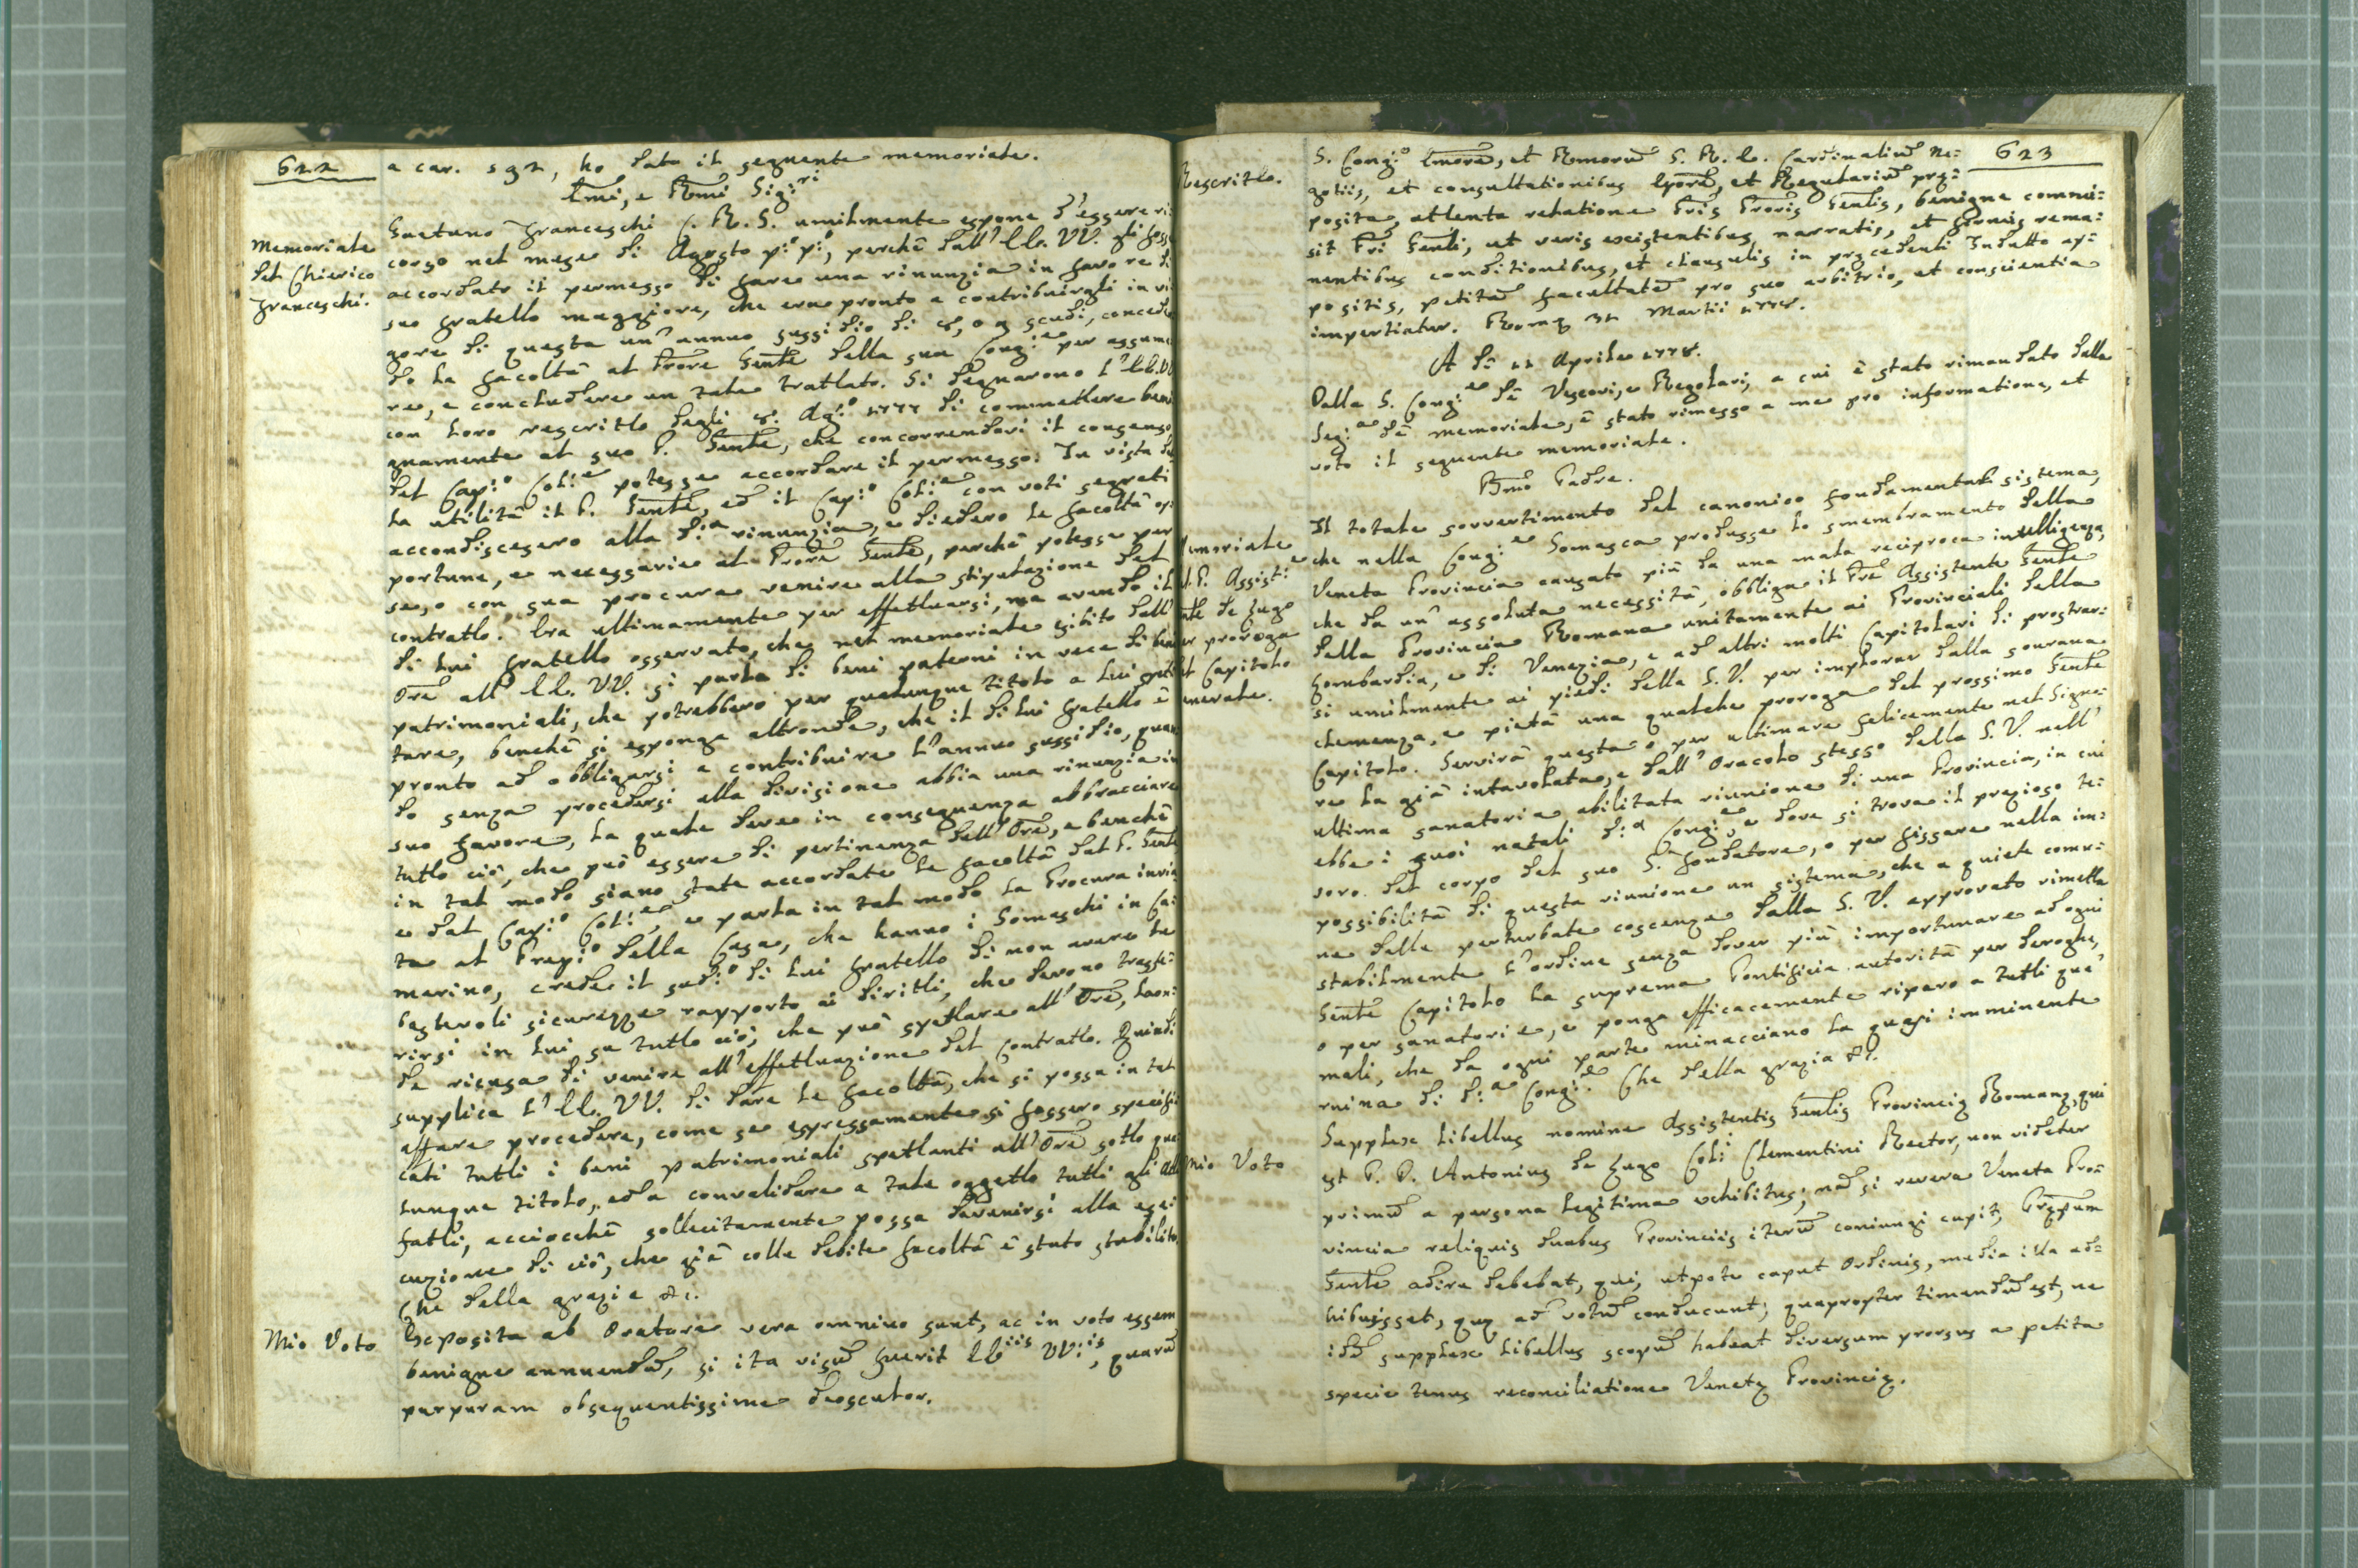 622
a car. 592, ho dato il seguente memoriale.
Emi, e Rmi Sig:ri
Memoriale
del Chierico
Franceschi.
Gaetano Franceschi C. R. S. umilmente espone d'essere ri
corso nel mese di Agosto p:o p:o, perchè dall' EE. VV. gli foss
accordato il permesso di fare una rinunzia in favore di
suo fratello maggiore, che era pronto a contribuirgli in vi
gore di questa un' annuo sussidio di scudi, conceden
do la facoltà al Prore Gente della sua Cong:ne per assume
re, e concludere un tale trattato. Si degnarono l' EE. VV
con loro rescritto degli 8. Ag:o 1777 di commettere beni
gnamente al suo P. Gente, che concorrendovi il consenso
del Cap:o Coll:e potesse accordare il permesso. In vista del
la utilità il P. Gente, ed il Cap:o Coll:e con voti segreti
accondiscesero alla d:a rinunzia, e diedero le facoltà op
portune, e necessarie al Prore Gente, perchè potesse per
se, o con sua procura venire alla stipulazione del
contratto. Era ultimamente per effettuarsi, ma avendo il
di lui fratello osservato, che nel memoriale esibito dall'
Ore all' EE. VV. si parla di beni paterni in vece di beni
patrimoniali, che potrebbero per qualunque titolo a lui spet
tare, benchè si esponga altronde, che il di lui fratello è
pronto ad obbligarsi a contribuire l'annuo sussidio, quan
do senza procedersi alla divisione abbia una rinunzia in
suo favore, la quale deve in conseguenza abbracciare
tutto ciò, che può essere di pertinenza dell' Ore, e benchè
in tal modo siano state accordate le facoltà dal P. Gente
e dal Cap:o Coll:e, e parla in tal modo la Procura invia
ta al Prep:o della Casa, che hanno i Somaschi in Ca
merino, crede il sud:o di lui fratello di non avere ba
stevoli sicurezze rapporto ai diritti, che devono trasfe=
rirsi in lui su tutto ciò, che può spettare all' Ore, laon
de ricusa di venire all' effettuazione del contratto. Quindi
supplica l' EE. VV. di dare le facoltà, che si possa in tal
affare procedere, come se espressamente si fossero specifi
cati tutti i beni patrimoniali spettanti all' Ore sotto qua
lunque titolo, ed a convalidare a tale oggetto tutti gli atti
fatti, acciocchè sollecitamente possa divenirsi alla ese
cuzione di ciò, che già colle debite facoltà è stato stabilito.
Che della grazia &c.
Mio Voto
Exposita ab Oratore vera omnino sunt, ac in voto essem
benigne annuendu, si ita visu fuerit EE:iis VV:is, quaru
purpuram obsequentissime deosculor.
623
Rescritto.
S. Cong:o Emore, et Rmoru S. R. E. Cardinaliu ne=
gotiis, et consultationibus Epore, et Regulariu præ=
posita, attenta relatione Pris Proris Gentis, benigne commi=
sit Pri Genti, ut veris existentibus narratis, et firmis rema=
nentibus conditionibus, et clausulis in præcedenti Indulto ap=
positis, petita facultate pro suo arbitrio, et conscientia
impertiatur. Romæ 31 Martii 1778.
A dì 11 Aprile 1778.
Dalla S. Cong:ne de' Vescovi, e Regolari, a cui è stato rimandato dalla
Seg:a de' memoriali, è stato rimesso a me pro informatione, et
voto il seguente memoriale.
Bmo Padre.
Memoriale
del P. Assist:e
Gnte de Lugo
per proroga
del Capitolo
Generale.
Il totale sovvertimento del canonico fondamental sistema,
che nella Cong:ne Somasca produsse lo smembramento della
Veneta Provincia causato più da una mala reciproca intelligenza,
che da un' assoluta necessità, obbliga il Pre Assistente Gente
della Provincia Romana unitamente ai Provinciali della
Lombardia, e di Venezia, e ad altri molti Capitolari di prostrar=
si umilmente ai piedi della S. V. per implorar dalla sovrana
clemenza, e pietà una qualche proroga del prossimo Gente
Capitolo. Servirà questa o per ultimare felicemente nel Signo=
re la già intavolata, e dall' Oracolo stesso della S. V. nell'
ultima sanatoria abilitata riunione di una Provincia, in cui
ebbe i suoi natali d:a Cong:ne, e dove si trova il prezioso te=
soro del corpo del suo S. Fondatore, o per fissare nella im=
possibilità di questa riunione un sistema, che a quiete comu=
ne delle perturbate coscenze dalla S. V. approvato rimetta
stabilmente l'ordine senza dover più importunare ad ogni
Gente Capitolo la suprema Pontificia autorità per deroghe,
o per sanatorie, e ponga efficacemente riparo a tutti que'
mali, che da ogni parte minacciano la quasi imminente
ruina di d:a Cong:ne. Che della grazia &c.
Mio Voto
Supplex libellus nomine Assistentis Gentis Provinciæ Romanæ, qui
est P. D. Antonius de Lugo Coll:i Clementini Rector, non videtur
primu a persona legitima exhibitus; na si revera Veneta Pro=
vincia reliquis duabus Provinciis iteru coniungi cupit, Præpum
Gente adire debebat, qui, utpote caput Ordinis, media illa ad=
hibuisset, quæ ad votu conducunt; quapropter timendu est, ne
idu supplex libellus scopu habeat diversum prorsus a petita
specie tenus reconciliatione Venetæ Provinciæ.